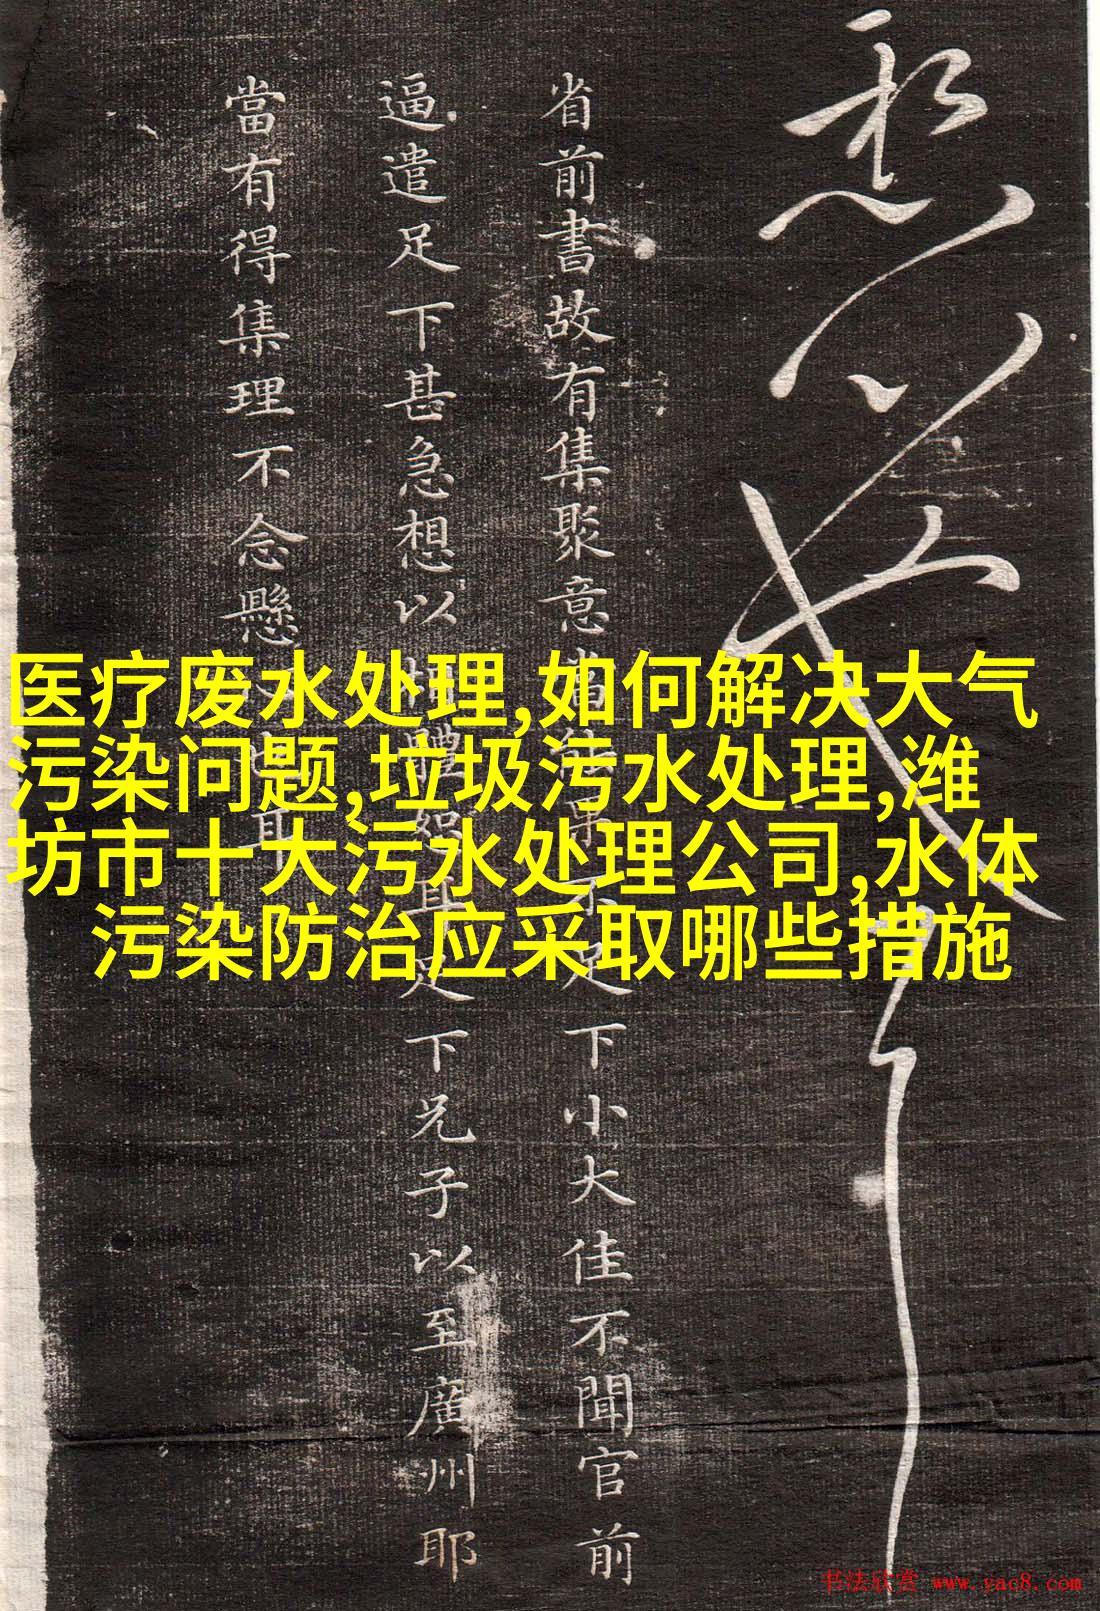 省前書故有集聚意當不足下小大佳不聞官前
逼遣足下甚急想以足下兄子以至廣州耶
當有得集理不念懸耳
医疗废水处理,如何解决大气
污染问题,垃圾污水处理,潍
坊市十大污水处理公司,水体
污染防治应采取哪些措施
书法欣赏 www.yac8.com